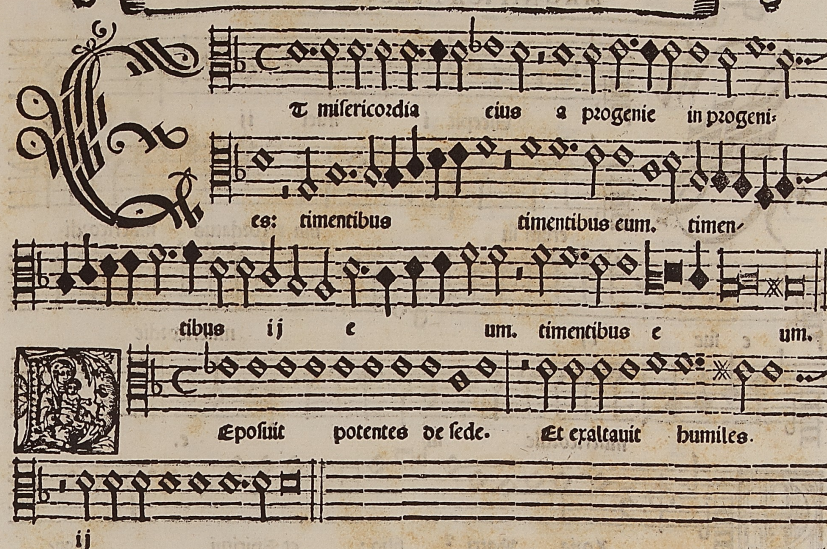 ET misericordia eius a progenie in progeni:
es: timentibus timentibus eum. timen-
tibus ij e um. timentibus e um.
DEposuit potentes de sede. Et exaltauit humiles.
ij